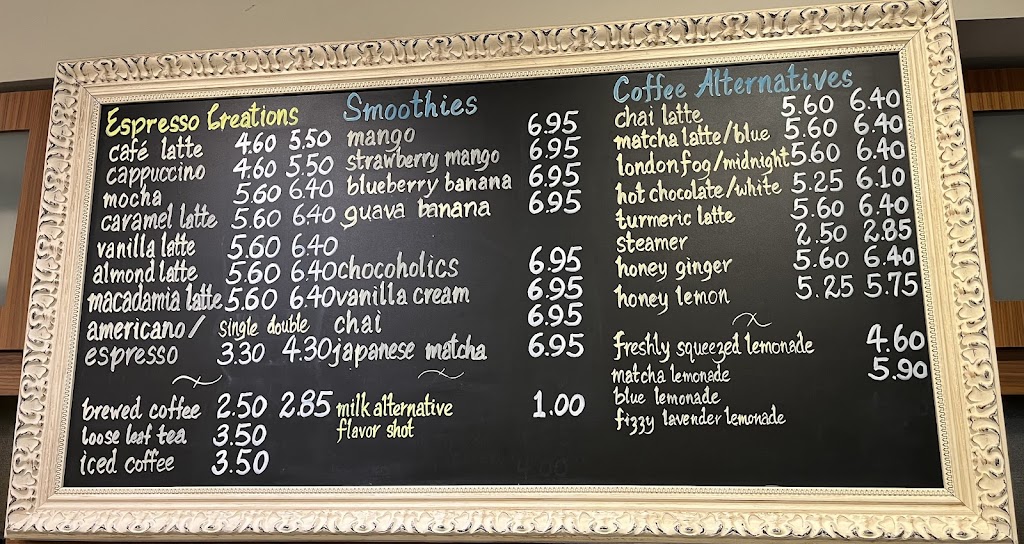 Espresso Creations
café latte 4.60 5.50
cappuccino 4.60 5.50
mocha 5.60 6.40
caramel latte 5.60 6.40
vanilla latte 5.60 6.40
almond latte 5.60 6.40
macadamia latte 5.60 6.40
americano/ single double
espresso 3.30 4.30
brewed coffee 2.50 2.85
loose leaf tea 3.50
iced coffee 3.50
Smoothies
mango 6.95
strawberry mango 6.95
blueberry banana 6.95
guava banana 6.95
chocoholics 6.95
vanilla cream 6.95
chai 6.95
japanese matcha 6.95
milk alternative 1.00
flavor shot
Coffee Alternatives
chai latte 5.60 6.40
matcha latte/blue 5.60 6.40
london fog/midnight 5.60 6.40
hot chocolate/white 5.25 6.10
turmeric latte 5.60 6.40
steamer 2.50 2.85
honey ginger 5.60 6.40
honey lemon 5.25 5.75
freshly squeezed lemonade 4.60
matcha lemonade 5.90
blue lemonade
fizzy lavender lemonade